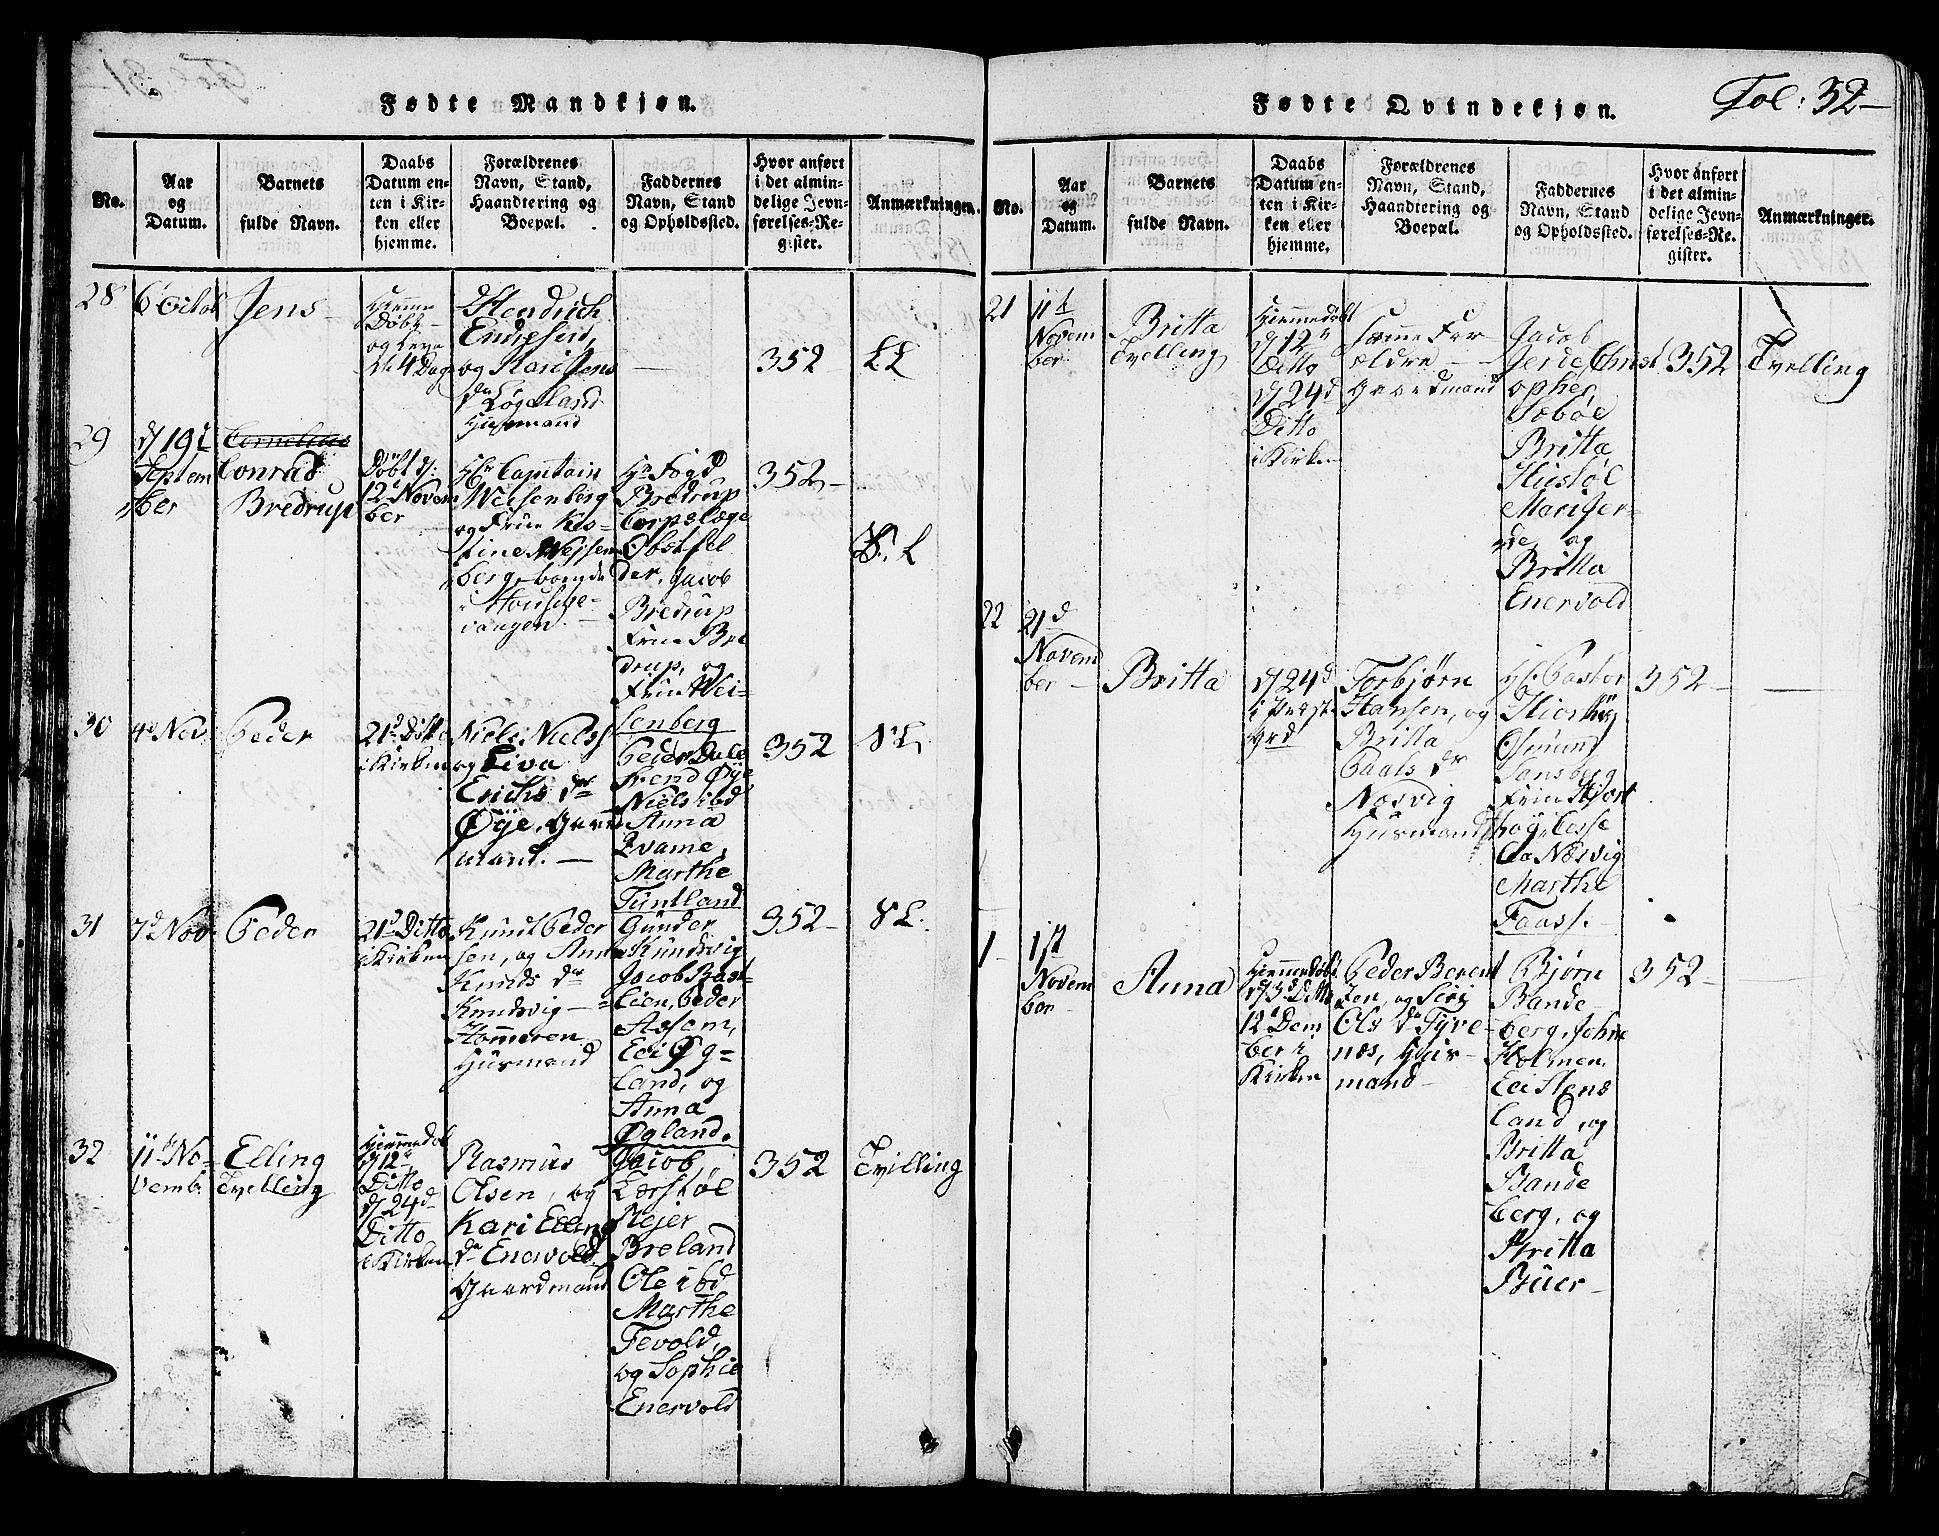 Fødte Mandkjøn.
No.
Aar
og
Datum.
Barnets
fulde Navn.
Daabs
Datum en-
ten i Kir-
ken eller
hjemme.
Forældrenes
Navn, Stand,
Haandtering og
Boepæl.
Faddernes
Navn, Stand
og Opholdssted.
Hvor anført
i det almin-
delige Jevn-
førelses-Re-
gister.
Anmærkninger.
28
6 Octob
Jens
Hjemme
Døbt
og Leve
de 4 Dag
Hendrich
Endresen,
og Kari Jens
dr Løgeland
Husmand
352
LL
29
d/19t
Septem
ber
Cornelius
Conrad
Bredrup
Døbt d:
12t Novem
ber
Hr Capitain
Weisenberg
og Frue Kis-
tine Weisen
berg, boende
i Housge-
vangen.
Hr Fogd
Bredrup
Corpslæge
Obstfel
der, Jacob
Bredrup
Frue Bre
drup, og
Frue Wei-
senberg
352
S. L
30
4d Nov:
Peder
21d Ditto
i Kirken
Niels Niels
og Siva
Erichs dr
Øÿe, Gaard
mand.
Peder Dale
Svend Øÿe
Niels ibd
Anna
Qvame,
Marthe
Tuntland
352
S L
31
7d Nov
Peder
21d Ditto
i Kirken
Knud Peder
sen, og Anna
Knuds dr
Knudsvig
Hommeren
Husmand
Gunder
Knudsvig
Jacob Bast
Lien, Peder
Assem,
Eli Øg-
land, og
Anna
Øgland.
352
S L.
32
11te No-
vemb.
Elling
Tvelling
Hjemmedøbt
d/12te
Ditto
d/24d
Ditto
i Kirken
Rasmus
Olsen, og
Kari Elling
dr Enervold
Gaardmand
Jacob
Lærstøl
Mejer
Breland
Ole ibd
Marthe
Tevold,
og Sophie
Enervold
352
Tvilling
Fødte Qvindekjøn.
Fol: 32
No.
Aar
og
Datum.
Barnets
fulde Navn.
Daabs
Datum en-
ten i Kir-
ken eller
hjemme.
Forældrenes
Navn, Stand,
Haandtering og
Boepæl.
Faddernes
Navn, Stand
og Opholdssted.
Hvor anført
i det almin-
delige Jevn-
førelses-Re-
gister.
Anmærkninger.
21
11t
Novem
ber
Britta
Tvelling
Hjemmedøbt
d/12te
Ditto
d/24d
Ditto
i Kirken
Samme For
ældre
Gaardmand
Jacob
Jerde, Christ
opher
Søbøe
Britta
Husstøl
Mari Jer-
de, og
Britta
Enervold
352
Tvelling
22
21d
Novem
ber
Britta
d/24d
i Præst
grd
Torbjørn
Hansen, og
Britta
Paals dr
Nosvig
Husmand
Hr: Pastor
Hiorthøg
Osmund
Sandberg
Frue Hjort
høg, Cesse
lia Næsvig
Marthe
Faass.
352
1
1st
Novem
ber
Anna
Hjemmedøbt
d/3d Ditto
12d Dem
ber i
Kirken
Peder Berent
zen, og Siri
Ols dr Tÿre-
næs, Hus-
mand
Bjørn
Bande
berg, Johne
Holmen,
Eli Stens
land, og
Britta
Bande
berg, og
Britta
Buer
352